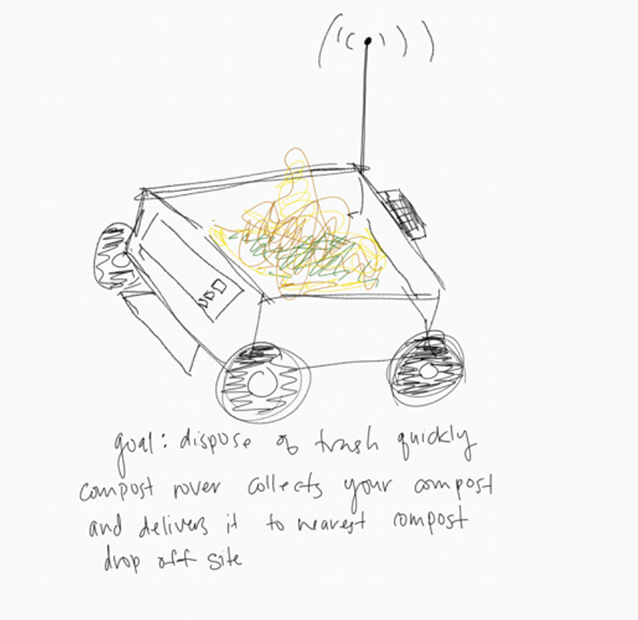 goal: dispose of trash quickly
compost rover collects your compost
and delivers it to nearest compost
drop off site